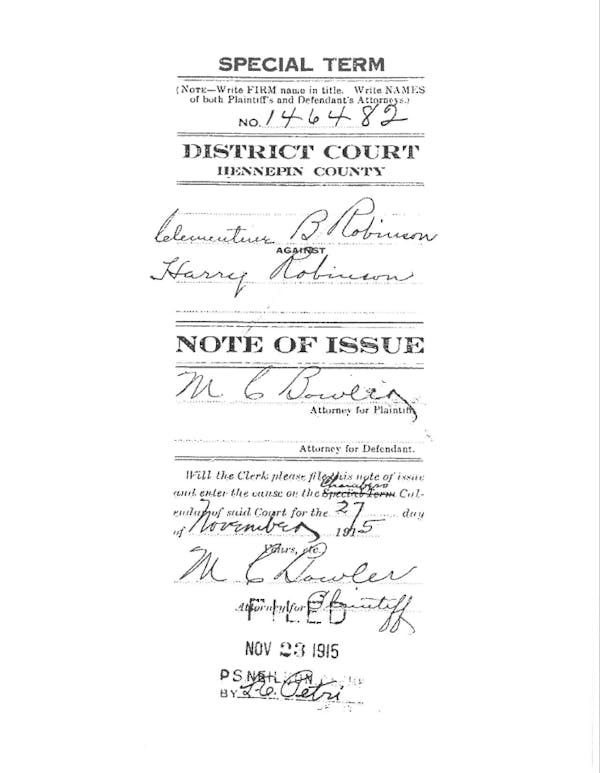 SPECIAL TERM
(NOTE—Write FIRM name in title. Write NAMES
of both Plaintiff's and Defendant's Attorneys.)
NO. 146482
DISTRICT COURT
HENNEPIN COUNTY
Clementine B Robinson
AGAINST
Harry Robinson
NOTE OF ISSUE
M C Bowler
Attorney for Plaintiff,
Attorney for Defendant.
Will the Clerk please file this note of issue
Chambers
and enter the cause on the Special Term Cal-
endar of said Court for the 27 day
of November 1915
Yours, etc.
M C Bowler
Attorney for Plaintiff
FILED
NOV 23 1915
P S NEILSON
BY